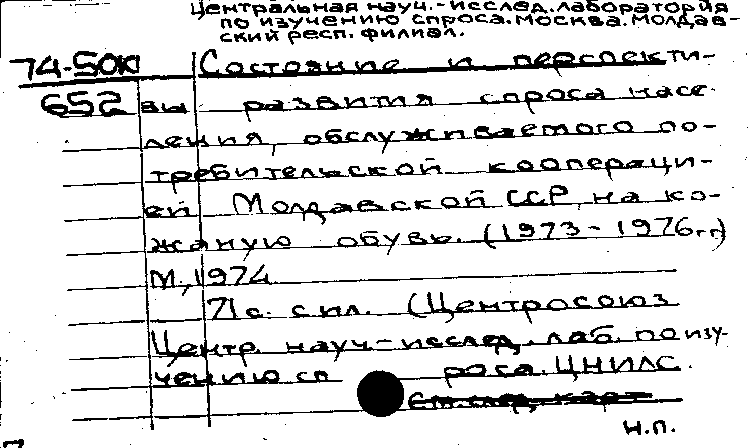 Центральная науч.-исслед. лаборатория
по изучению спроса. Москва. Молдав-
ский респ. филиал.
74-50к Состояние и перспекти-
652 вы развития спроса насе-
ления, обслуживаемого по-
требительской коопераци-
ей Молдавской ССР, на ко-
жаную обувь. (1973-1976гг)
М., 1974
71с. с ил. (Центросоюз
Центр. науч-исслед. лаб. по изу-
чению сп роса. ЦНИЛС.
См. след. карт
н.п.